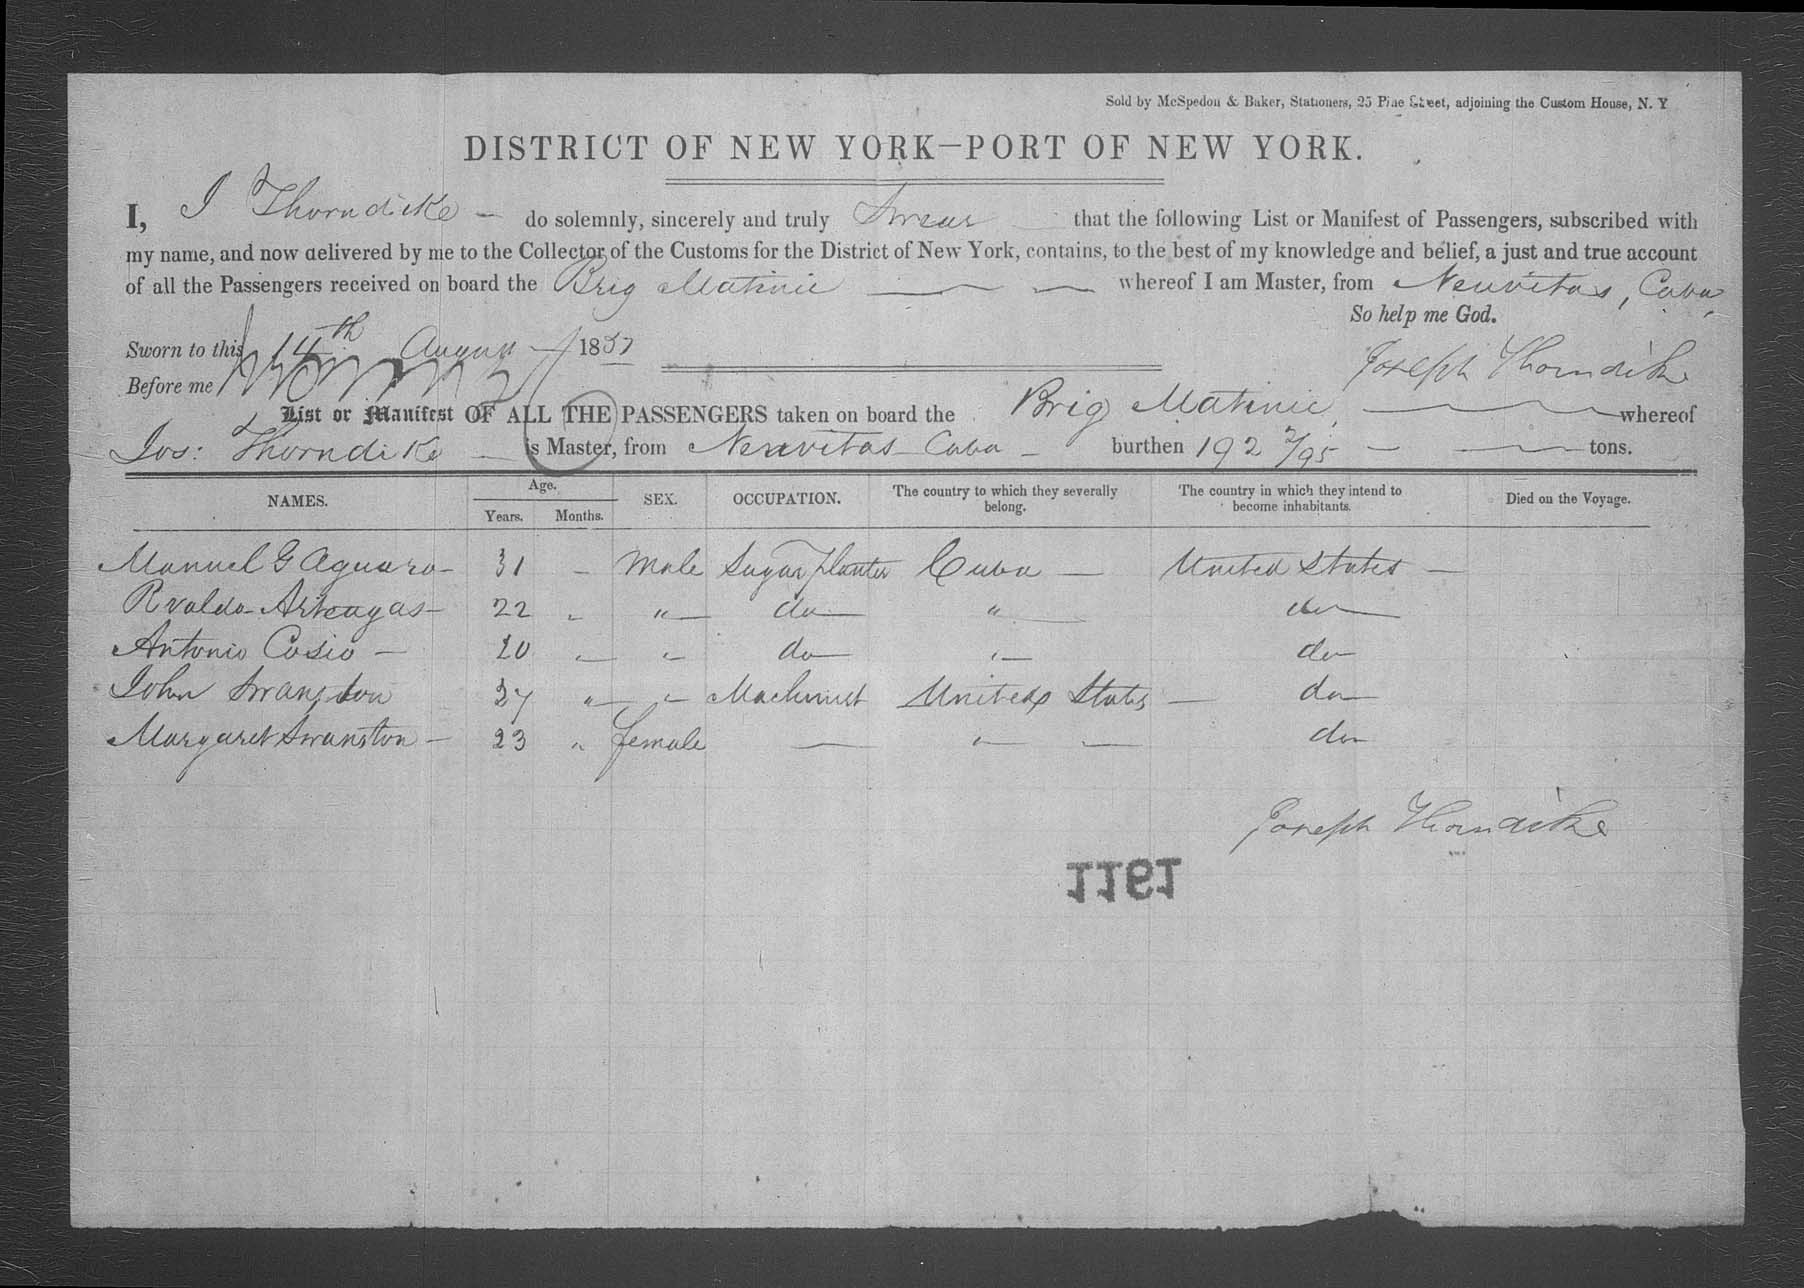 Sold by McSpedon & Baker, Stationers, 25 Pine Street, adjoining the Custom House, N. Y
DISTRICT OF NEW YORK—PORT OF NEW YORK.
I, J Thorndike — do solemnly, sincerely and truly Swear that the following List or Manifest of Passengers, subscribed with
my name, and now delivered by me to the Collector of the Customs for the District of New York, contains, to the best of my knowledge and belief, a just and true account
of all the Passengers received on board the Brig Matinic — — whereof I am Master, from Neuvitas, Cuba
So help me God.
Sworn to this 14th August 1857
Joseph Thorndike
Before me
List or Manifest OF ALL THE PASSENGERS taken on board the Brig Matinic, — whereof
Jos: Thorndike — is Master, from Neuvitas Cuba — burthen 192 2/95 — — tons.
NAMES. Age. Years. Months. SEX. OCCUPATION. The country to which they severally belong. The country in which they intend to become inhabitants. Died on the Voyage.
Manuel G Aguaro — 31 — Male Sugar planter Cuba — United States —
Arteagas — 22 " " — do — " — do —
Antonio Cosio — 20 " " do — " — do
John Swanston 37 " " Machinist United States — do
Margaret Swanston — 23 " female — " — do
Joseph Thorndike
1161